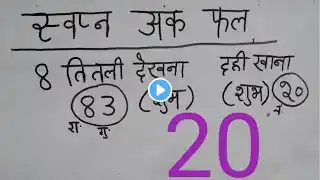 स्वप्न अंक फल
8 तितली देखना दही खाना
83 (शुभ) (शुभ) 20
श. गु.
20